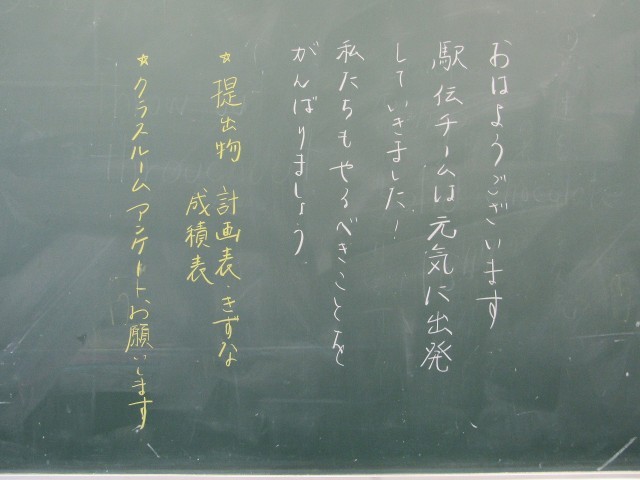 おはようございます
駅伝チームは元気に出発
していきました!
私たちもやるべきことを
がんばりましょう
☆提出物 計画表・きずな
成績表
☆クラスルームアンケートお願いします